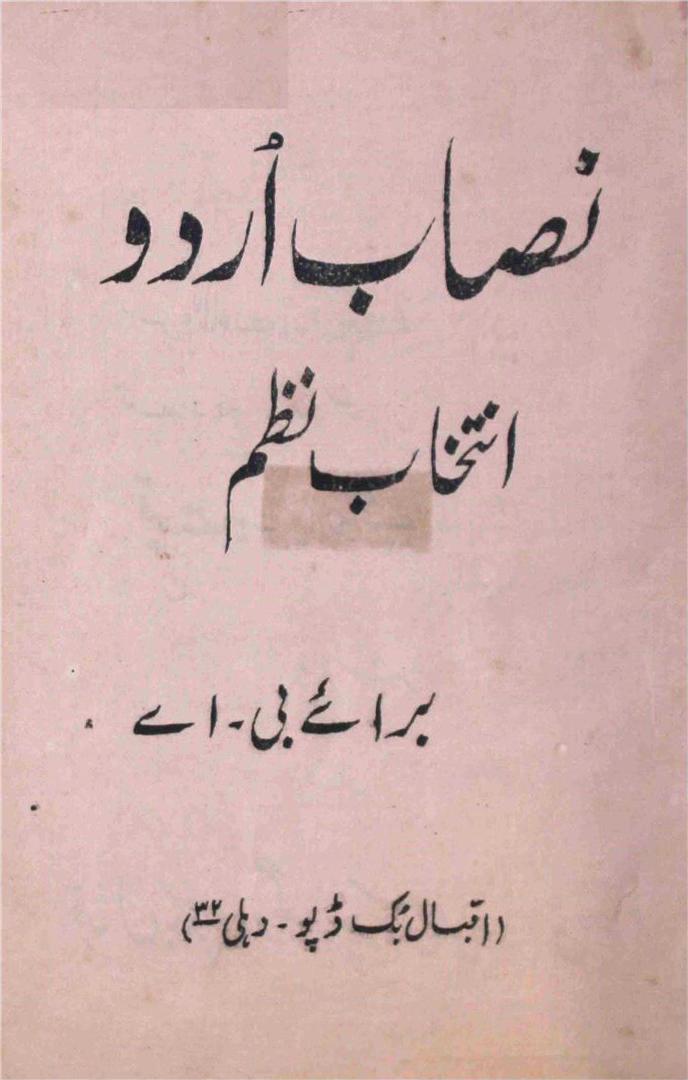 نصاب اُردو
انتخاب نظم
برائے بی۔اے
(اقبال بک ڈپو۔دہلی ۳۲)